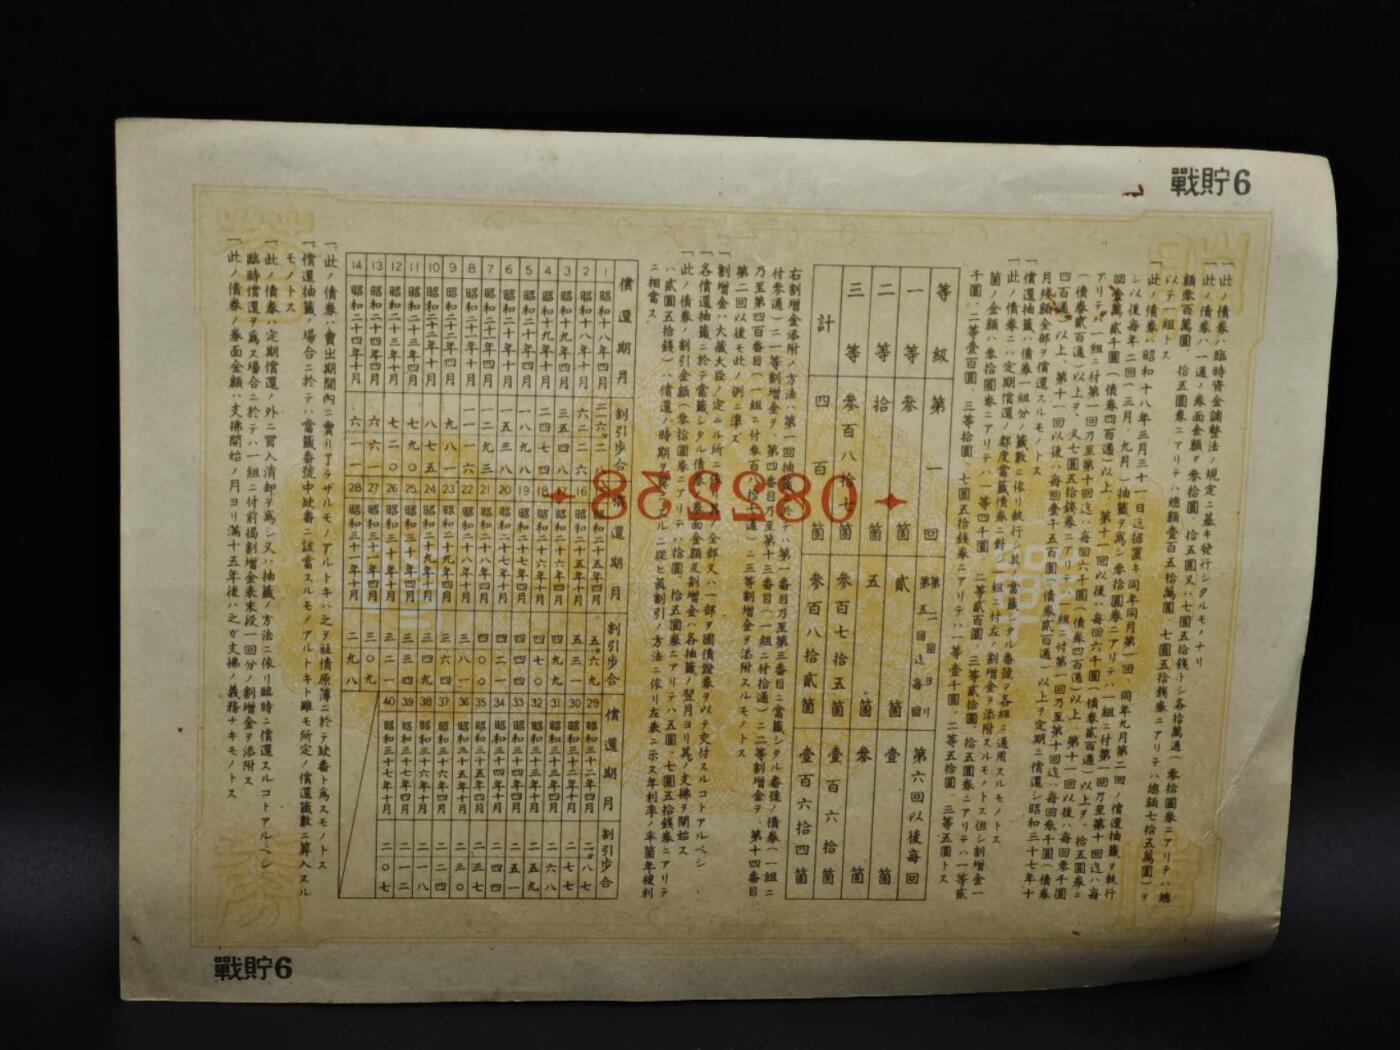 戰貯6
一、此ノ債券ハ臨時資金調整法ノ規定ニ基キ發行シタルモノナリ
一、此ノ債券ハ一通ノ券面金額ヲ參拾圓、拾五圓又ハ七圓五拾錢トシ各拾萬通(參拾圓券ニアリテハ總
額參百萬圓、拾五圓券ニアリテハ總額壹百五拾萬圓、七圓五拾錢券ニアリテハ總額七拾五萬圓)ヲ
以テ一組トス
一、此ノ債券ハ昭和十八年三月三十一日迄据置キ同年同月第一回、同年九月第二回ノ償還抽籤ヲ執行
シ以後毎年二回(三月、九月)抽籤ヲ爲シ參拾圓券ニアリテハ一組ニ付第一回乃至第十回迄ハ毎
回壹萬貳千圓(債券四百通)以上、第十一回以後ハ毎回六千圓(債券貳百通)以上ヲ、拾五圓券ニ
アリテハ一組ニ付第一回乃至第十回迄ハ毎回六千圓(債券四百通)以上、第十一回以後ハ毎回參千圓
(債券貳百通)以上ヲ、又七圓五拾錢券ニアリテハ一組ニ付第一回乃至第十回迄ハ毎回參千圓(債券
四百通)以上、第十一回以後ハ毎回壹千五百圓(債券貳百通)以上ヲ定期ニ償還シ昭和三十七年十
月殘額全部ヲ償還スルモノトス
一、償還抽籤ハ債券一組分ノ籤數ニ依リ執行シ其ノ當籤シタル番號ヲ各組ニ通用スルモノトス
一、此ノ債券ニハ定期償還ノ都度當籤債券ニ對シ一組ニ付左ノ割增金ヲ添附スルモノトス但シ割增金一
箇ノ金額ハ參拾圓券ニアリテハ一等四千圓、二等貳百圓、三等貳拾圓、拾五圓券ニアリテハ一等貳
千圓、二等壹百圓、三等拾圓、七圓五拾錢券ニアリテハ一等壹千圓、二等五拾圓、三等五圓トス
等級 第一回 第二回ヨリ第五回迄毎回 第六回以後毎回
一等 參箇 貳箇 壹箇
二等 拾箇 五箇 參箇
三等 參百八拾七箇 參百七拾五箇 壹百六拾箇
計 四百箇 參百八拾貳箇 壹百六拾四箇
082238
右割增金添附ノ方法ハ第一回抽籤ニ於テハ第一番目乃至第三番目ニ當籤シタル番號ノ債券(一組ニ
付參通)ニ一等割增金ヲ、第四番目乃至第十三番目(一組ニ付拾通)ニ二等割增金ヲ、第十四番目
乃至第四百番目(一組ニ付參百八拾七通)ニ三等割增金ヲ添附スルモノトス
第二回以後モ此ノ例ニ準ズ
一、割增金ハ大藏大臣ノ定ムル所ニ依リ其ノ全部又ハ一部ヲ國債證券ヲ以テ交付スルコトアルベシ
一、各償還抽籤ニ於テ當籤シタル債券ノ券面金額及割增金ハ各抽籤ノ翌月ヨリ其ノ支拂ヲ開始ス
一、此ノ債券ノ割引金額(參拾圓券ニアリテハ拾圓、拾五圓券ニアリテハ五圓、七圓五拾錢券ニアリテ
ハ貳圓五拾錢)ハ償還ノ時期ヲ異ニスルニ從ヒ眞割引ノ方法ニ依リ左表ニ示ス年利率ノ半箇年複利
ニ相當ス
償還期月 割引歩合 償還期月 割引歩合 償還期月 割引歩合
1 昭和十八年四月 15 昭和二十五年四月 五六九 29 昭和三十二年四月 二八七
2 昭和十八年十月 六二二六 16 昭和二十五年十月 五三一 30 昭和三十二年十月 二七七
3 昭和十九年四月 三五四八 17 昭和二十六年四月 四九九 31 昭和三十三年四月 二六八
4 昭和十九年十月 二四七四 18 昭和二十六年十月 四七〇 32 昭和三十三年十月 二五九
5 昭和二十年四月 一八九八 19 昭和二十七年四月 四四四 33 昭和三十四年四月 二五一
6 昭和二十年十月 一五三八 20 昭和二十七年十月 四二一 34 昭和三十四年十月 二四四
7 昭和二十一年四月 一二九三 21 昭和二十八年四月 四〇〇 35 昭和三十五年四月 二三七
8 昭和二十一年十月 一一一六 22 昭和二十八年十月 三八一 36 昭和三十五年十月 二三〇
9 昭和二十二年四月 九八一 23 昭和二十九年四月 三六四 37 昭和三十六年四月 二二四
10 昭和二十二年十月 八七五 24 昭和二十九年十月 三四九 38 昭和三十六年十月 二一八
11 昭和二十三年四月 七九〇 25 昭和三十年四月 三三四 39 昭和三十七年四月 二一二
12 昭和二十三年十月 七二〇 26 昭和三十年十月 三二一 40 昭和三十七年十月 二〇七
13 昭和二十四年四月 六六一 27 昭和三十一年四月 三〇九
14 昭和二十四年十月 六一一 28 昭和三十一年十月 二九八
一、此ノ債券ハ賣出期間內ニ賣リ了ラザルモノアルトキハ之ヲ社債原簿ニ於テ缺番ト爲スモノトス
一、償還抽籤ノ場合ニ於テハ當籤番號中缺番ニ該當スルモノアルトキト雖モ所定ノ償還籤數ニ算入スル
モノトス
一、此ノ債券ハ定期償還ノ外ニ買入消却ヲ爲シ又ハ抽籤ノ方法ニ依リ臨時ニ償還スルコトアルベシ
臨時償還ヲ爲ス場合ニ於テハ一組ニ付前揭割增金表末段一回分ノ割增金ヲ添附ス
一、此ノ債券ノ券面金額ハ支拂開始ノ月ヨリ滿十五年後ハ之ガ支拂ノ義務ナキモノトス
戰貯6